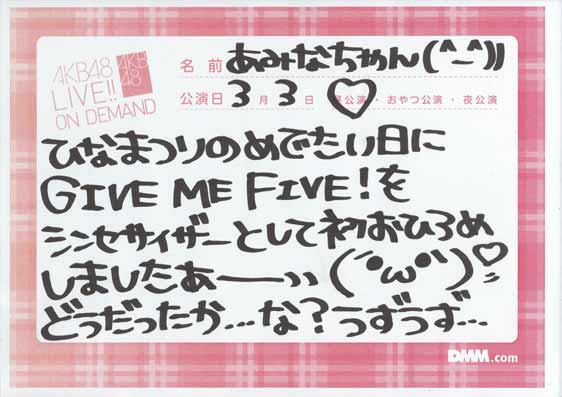 AKB48
LIVE!!
ON DEMAND
AKB
48
名前 あみなちゃん(^-^))
公演日 3月3日 昼公演・おやつ公演・夜公演
ひなまつりのめでたい日に
GIVE ME FIVE!を
シンセサイザーとして初おひろめ
しましたあーーいい(´°ω°`)♡=
どうだったか…な?うずうず…
DMM.com